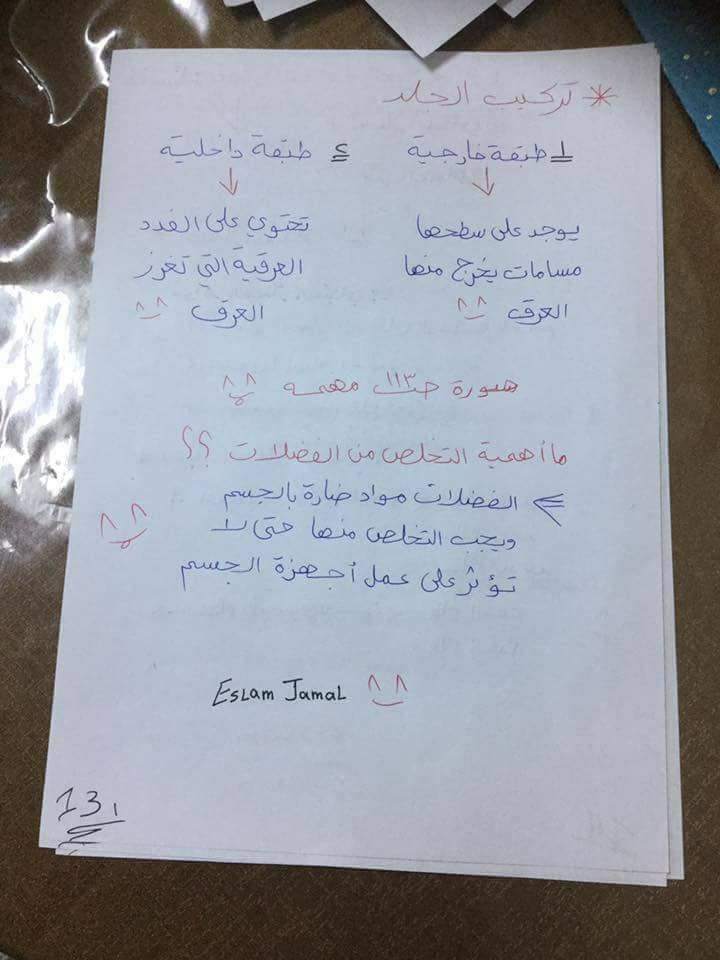 * تركيب الجلد
1 طبقة خارجية
يوجد على سطحها
مسامات يخرج منها
العرق
2 طبقة داخلية
تحتوي على الغدد
العرقية التي تفرز
العرق
صورة ١١٣ مهمه
ما أهمية التخلص من الفضلات ؟؟
الفضلات مواد ضارة بالجسم
ويجب التخلص منها حتى لا
تؤثر على عمل أجهزة الجسم
Eslam Jamal